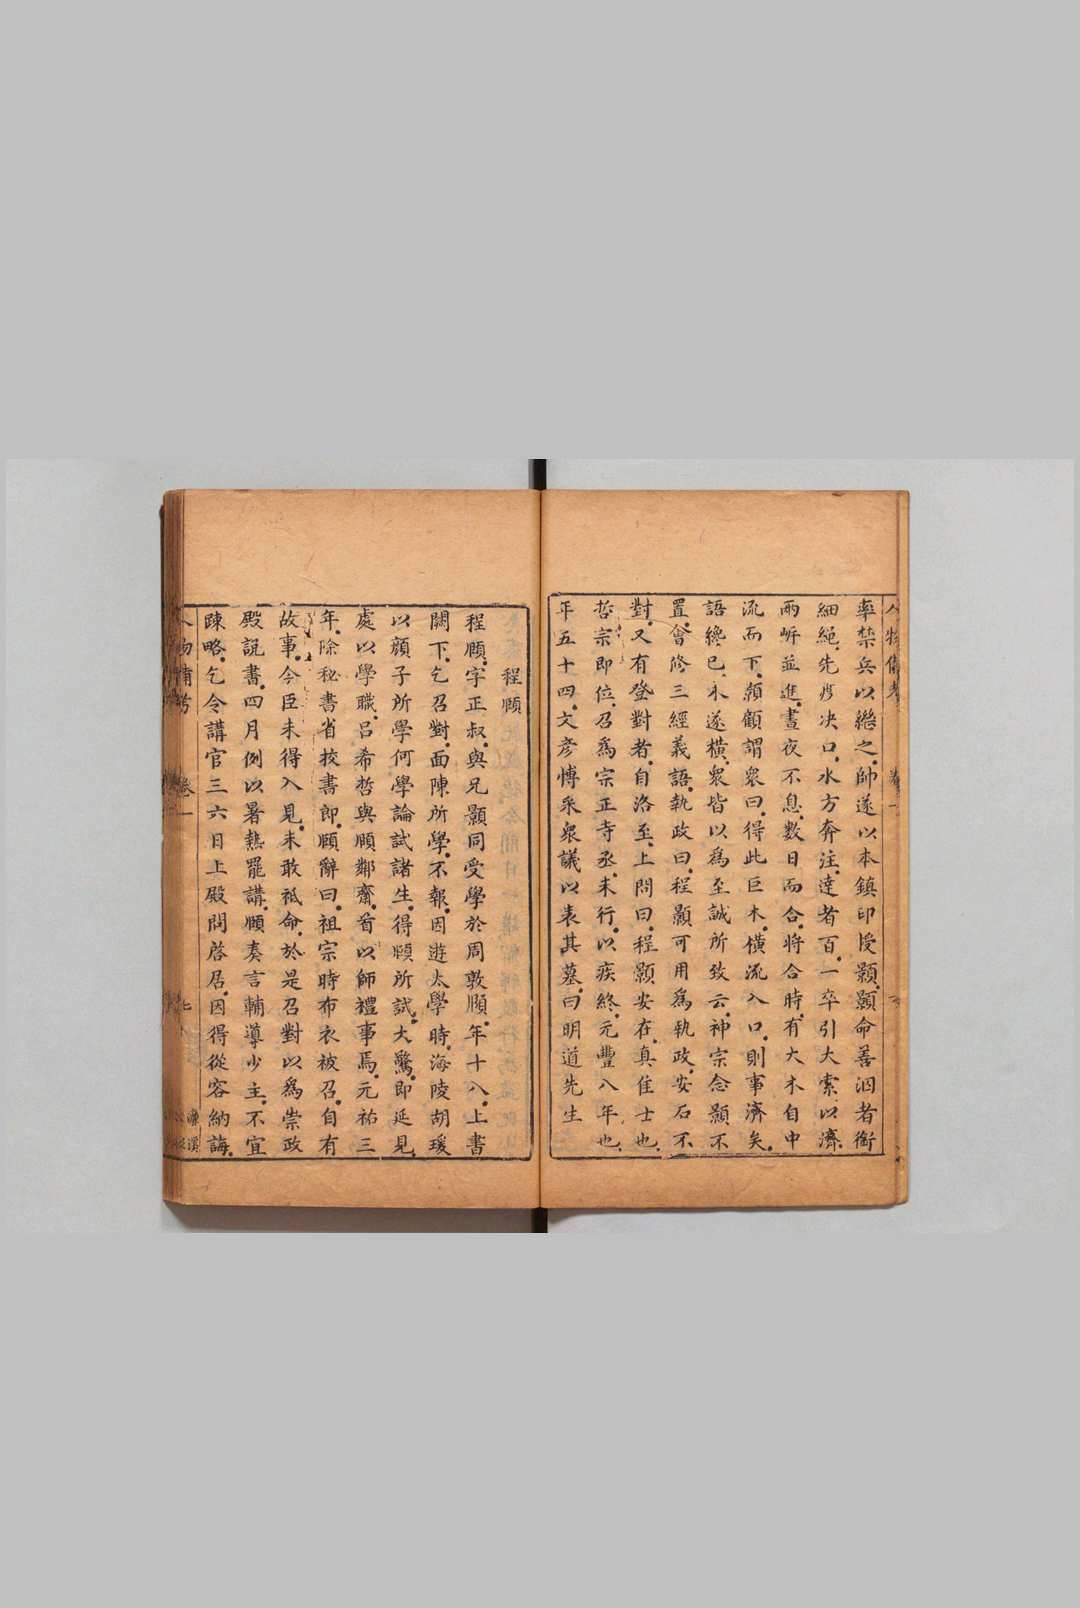 人物備考 卷一
率禁兵以繼之帥遂以本鎮印授顥顥命善泅者銜
細繩先度决口水方奔注達者百一卒引大索以濟
兩岸並進晝夜不息數日而合將合時有大木自中
流而下顥顧謂衆曰得此巨木橫流入口則事濟矣
語纔已木遂橫衆皆以爲至誠所致云神宗念顥不
置會修三經義語執政曰程顥可用爲執政安石不
對又有登對者自洛至上問曰程顥安在真佳士也
哲宗即位召爲宗正寺丞未行以疾終元豐八年也
年五十四文彦愽采衆議以表其墓曰明道先生
程頤
程頤字正叔與兄顥同受學於周敦頤年十八上書
闕下乞召對面陳所學不報因遊太學時海陵胡瑗
以顔子所學何學論試諸生得頤所試大驚即延見
處以學職呂希哲與頤鄰齋首以師禮事焉元祐三
年除秘書省挍書郎頤辭曰祖宗時布衣被召自有
故事今臣未得入見未敢祗命於是召對以爲崇政
殿説書四月例以暑熱罷講頤奏言輔導少主不宜
踈略乞令講官三六日上殿問啓居因得從容納誨
人物備考 卷一